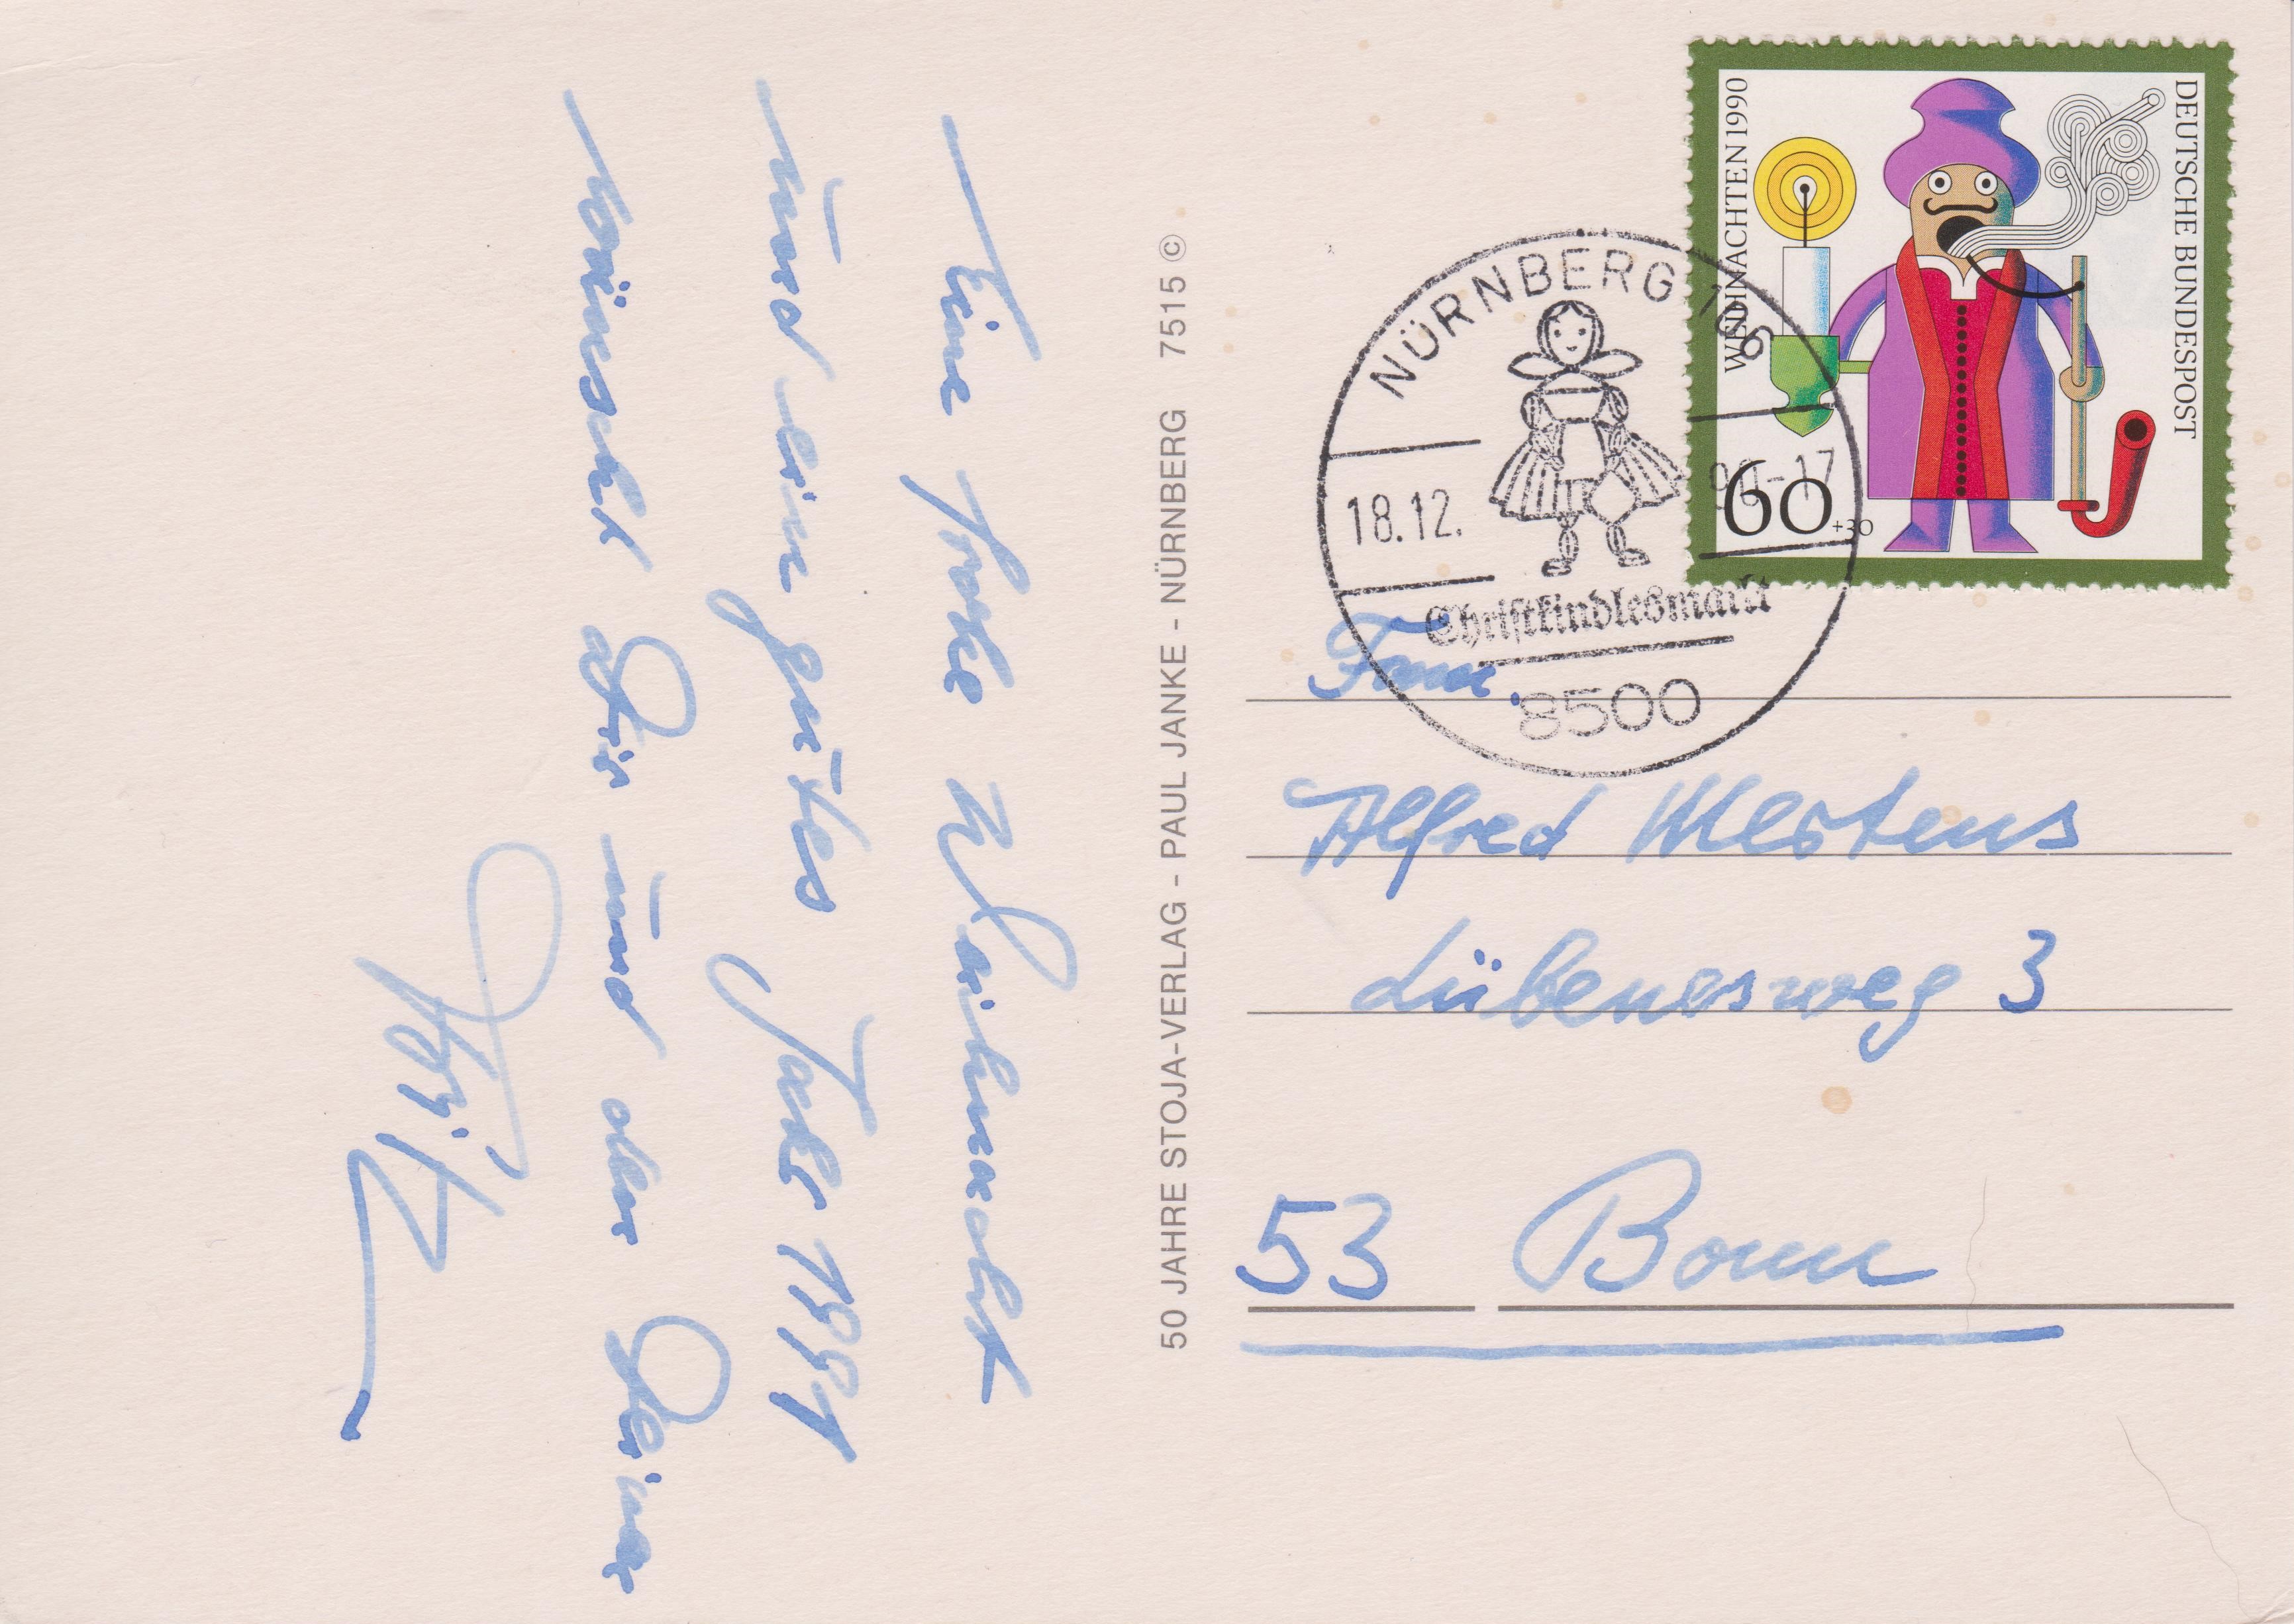 Eine frohe Weihnacht
und ein gutes Jahr 1991
wünscht Dir und den Deinen
Fritz
50 JAHRE STOJA-VERLAG - PAUL JANKE - NÜRNBERG 7515 ©
WEIHNACHTEN 1990
DEUTSCHE BUNDESPOST
60 +30
NÜRNBERG 106
18.12. 90-17
Christkindlesmarkt
8500
Fam.
Alfred Mertens
53 Bonn